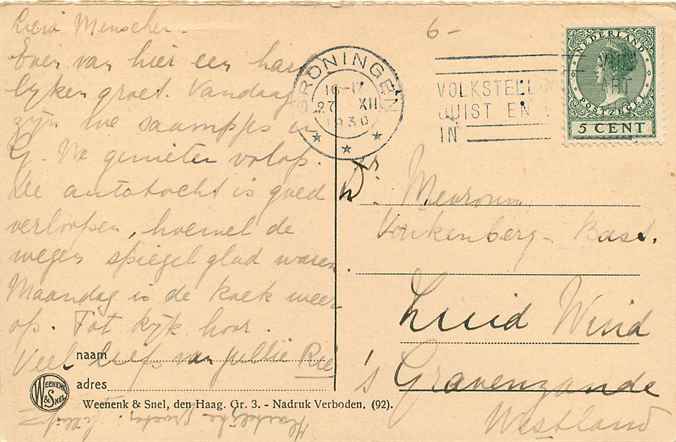 Lieve Menschen.
Even van hier een har
lyken groet. Vandaag
zijn we saampjes in
G. We genieten volop.
De autotocht is goed
verloopen, hoewel de
wegen spiegel glad waren.
Maandag is de koek weer
op. Tot kijk hoor.
Veel liefs van jullie Rie
naam
adres
WEENENK & SNEL
Weenenk & Snel, den Haag. Gr. 3. - Nadruk Verboden. (92).
Hartelijke
6-
GRONINGEN
16-17
27 XII
1930
VOLKSTELL
JUIST EN
IN
NEDERLAND
POSTZEGEL
5 CENT
Mevrouw
Valkenberg - Bast.
Zuid Wind
's Gravenzande
Westland